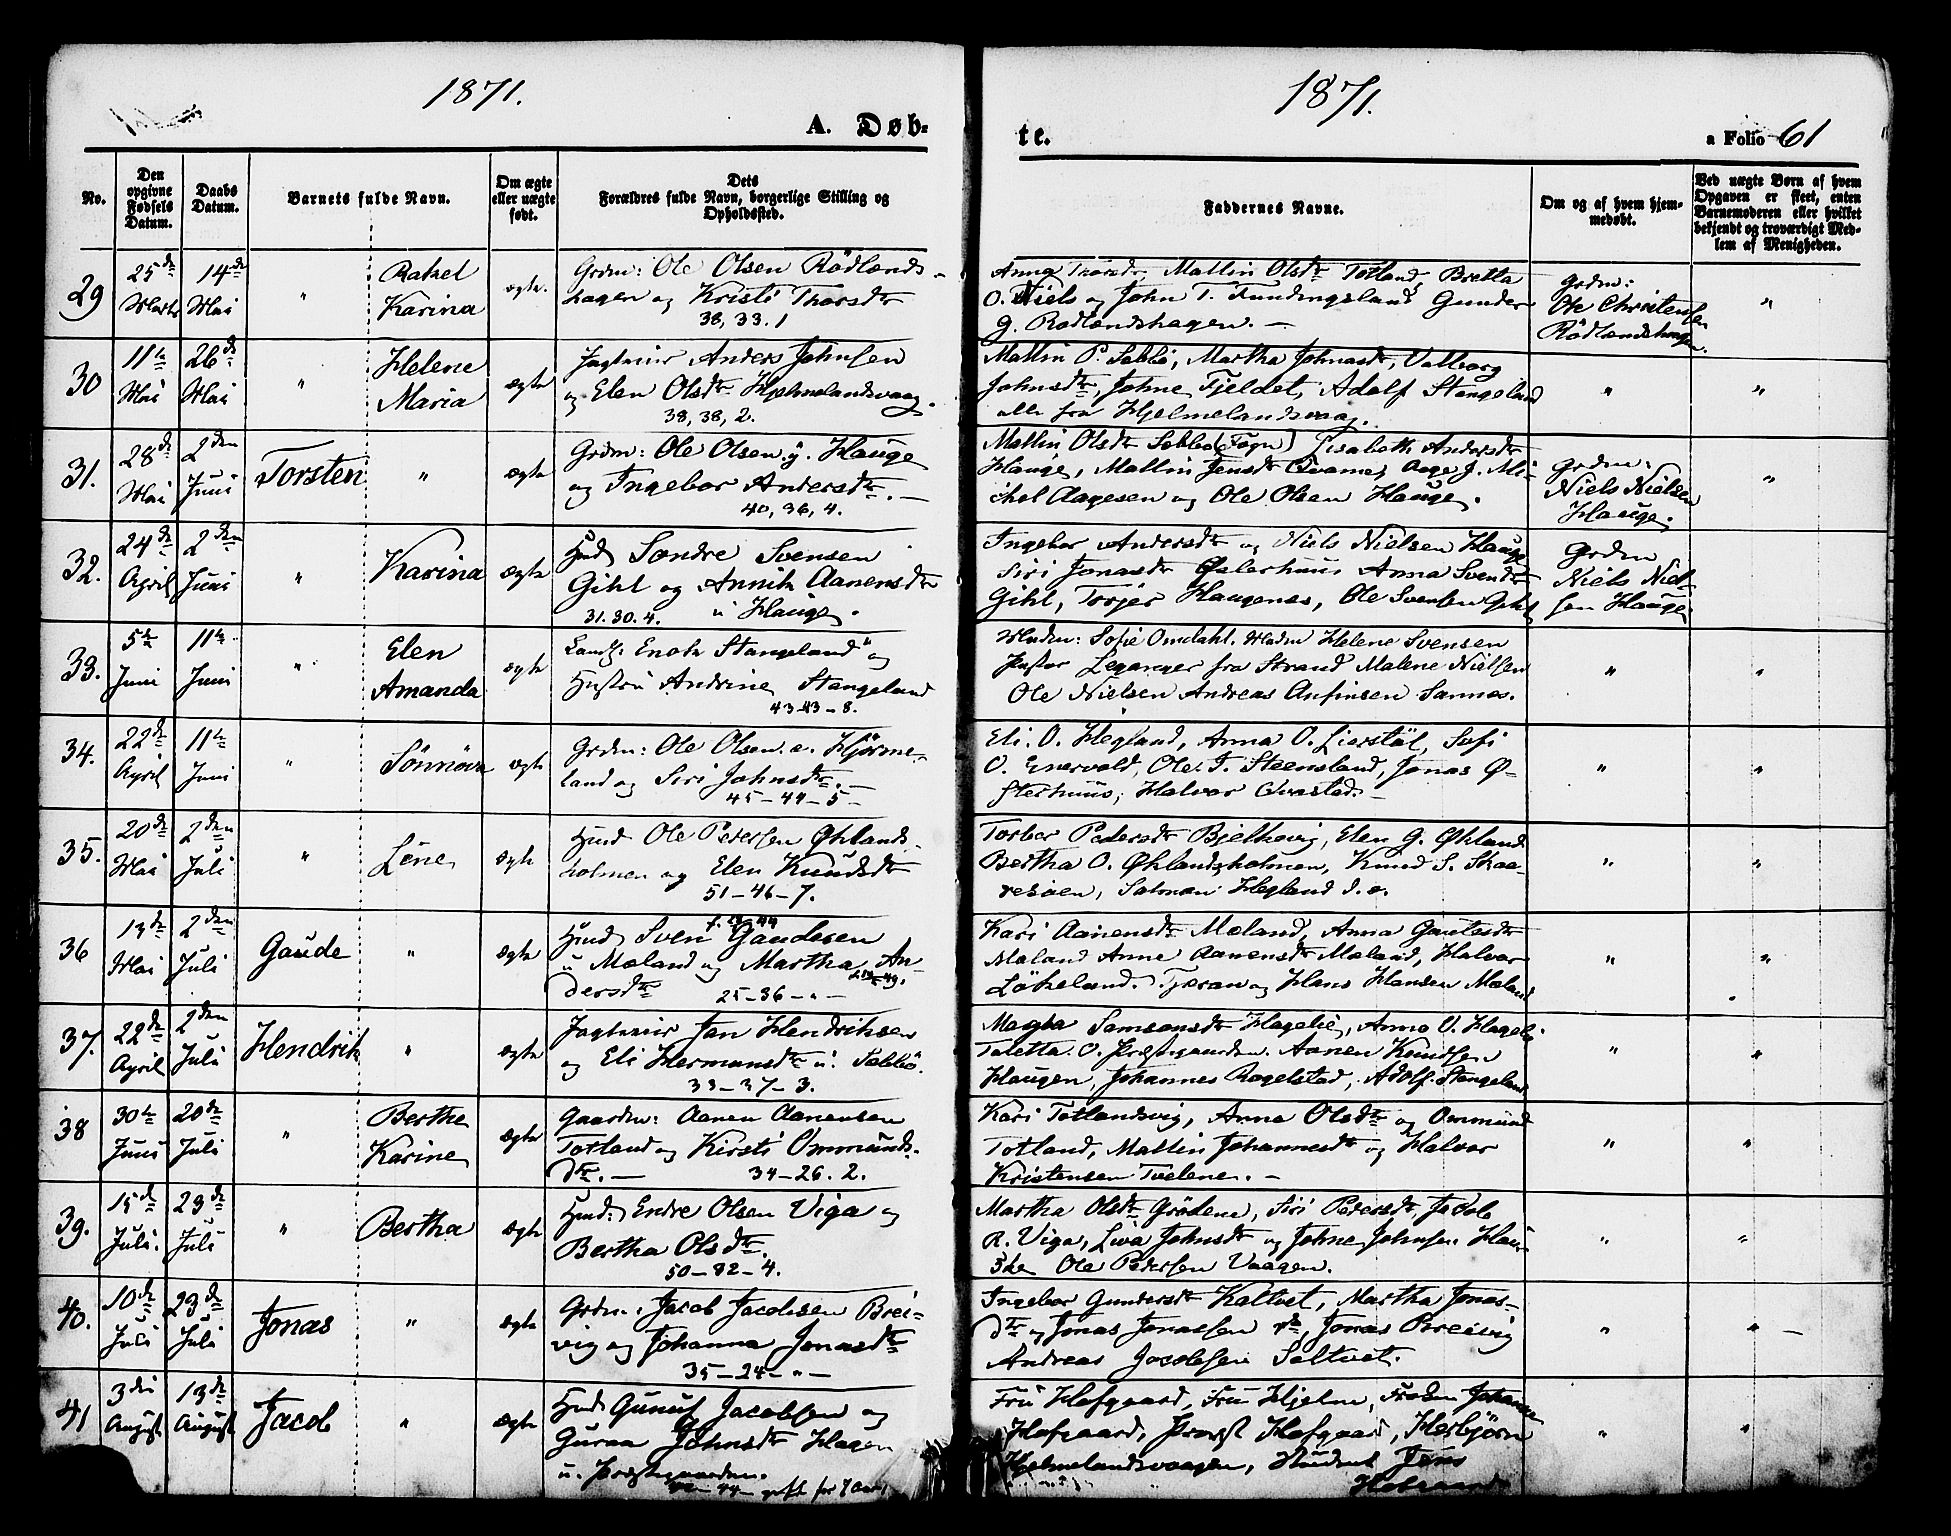 1871.
A. Døb-
No.
Den opgivne Fødsels Datum.
Daabs Datum.
Barnets fulde Navn.
Om ægte eller uægte født.
Dets Forældres fulde Navn, borgerlige Stilling og Opholdssted.
29
25de Marts
14de Mai
"
Rakel Karina
ægte.
Grdm: Ole Olsen Rödlands-
hagen og Kristi Thorsdtr
38, 33. 1
30
11te Mai
26de Mai
"
Helene Maria
ægte
Anders Johnsen
og Elen Olsdtr Hjelmelandsvaag.
38, 38, 2.
31.
28de Mai
2den Juni
Torsten
"
ægte
Grdm: Ole Olsen y. Hauge
og Ingebor Andersdtr. -
40, 36, 4.
32.
24de April
2den Juni
"
Karina
ægte
Hmd Sondre Svensen
Gihl og Aanensdtr
31. 30. 4. u Hauge.
33.
5te Juni
11te Juni
"
Elen Amanda
ægte
Enok Stangeland og
Hustru Andrine Stangeland
43-43-8.
34.
22de April
11te Juni
"
Sönnöva
ægte
Grdm: Ole Olsen. e. Hjörme-
land og Siri Johnsdtr. -
45-44-5-
35.
20de Mai
2den Juli
"
Lene
ægte
Hmd Ole Pedersen Øklands-
holmen og Elen Knudsdtr
51-46-7.
36
13de Mai
2den Juli
Gaude
"
ægte
Hmd Sven Gaudesen
u Mæland og Martha An-
dersdtr 25-36-"-
37.
22de April
2den Juli
Hendrik
"
ægte
Jan Hendriksen
og Eli Hermansdtr u. Sæbbö.
33-37-3.
38
30te Juni
20de Juli
"
Berthe Karine
ægte
Gaardm: Aanen Aanensen
Totland og Kirsti Ommunds-
dtr. - 34-26. 2.
39.
15de Juli.
23de Juli
"
Bertha
ægte
Hmd: Endre Olsen Viga og
Bertha Olsdtr.
50-32-4.
40.
10de Juli
23de Juli
Jonas
"
ægte
Grdm: Jacob Jacobsen Brei-
vig og Johanna Jonasdtr
35-24-"-
41
3die August
13de August
Jacob
"
ægte
Hmd Gunuf Jacobsen og
Guroa Johnsdtr Hagen
u. Præstegaarden.
1871.
te.
a Folio 61
Faddernes Navne.
Om og af hvem hjem-medøbt.
Ved uægte Børn af hvem Opgaven er skeet, enten Barnemoderen eller hvilket bekjendt og troværdigt Med-lem af Menigheden.
Anna Thorsdtr, Mallin Olsdtr Totland, Bretta
O. Niels og John T. Fundingsland Gunder
G. Rödlandshagen. -
Grdm: Ole Christensen Rödlandshagen.
"
Mallin P. Sæbbö, Martha Johnasdtr, Valborg
Johnsdtr, Johne Fjeldet, Adolf Stangeland
alle fra Hjelmelandsvaag.
"
"
Mallin Olsdtr Sæbbö (Fogn) Lisabeth Andersdtr
Hauge, Mallin Jensdtr Qvame, Aage J. Mi-
chel Aagesen og Ole Olsen Hauge.
Grdm: Niels Nielsen Hauge.
"
Ingebor Andersdtr og Niels Nielsen Hauge
Siri Jonasdtr Østerhuus Anna Svendtr
Gihl, Torjer Haugenes, Ole Svensen Gihl
Grdm Niels Niel-sen Hauge
Madm: Sofie Omdahl. Madm Helene Svensen
Pastor Leganger fra Strand Malene Nielsen
Ole Nielsen Andreas Anfinsen Sannes.
"
"
Eli. O. Hegland, Anna O. Lierstöl, Sofi
O. Enervold, Ole. T. Steensland, Jonas Ø-
sterhuus, Halvor Qvastad. -
"
"
Torbor Pedersdtr Bjelkevig, Elen G. Økland
Bertha O. Øklandsholmen, Knud S. Skaa-
resöen, Salmon Hegland d. e.
"
"
Kari Aanensdtr Mæland, Anna Gautesdtr
Mæland Anne Aanensdtr Mæland, Halvor
Lökeland. Tjeran og Hans Hansen Mæland
"
"
Magla Samsonsdtr Hagelie, Anna O. Hageli
Taletta O. Præstegaarden. Aanen Knudsen
Haugen, Johannes Ragelstad, Adolf Stangeland
"
"
Kari Totlandsvig, Anna Olsdtr og Ommund
Totland, Mallin Johannesdtr og Halvor
Kristensen Tvelene. -
"
"
Martha Olsdtr Grödem, Siri Pedersdtr, Jacob
R. Viga, Liva Johnsdtr og Johne Johnsen Hau-
ske Ole Pedersen Vaagen.
"
"
Ingebor Gundersdtr Kaltvet, Martha Jonas-
dtr og Jonas Jonassen , Jonas Breivig
Andreas Jacobsen Saltvet.
"
" -
Fru Hofgaard, Fru Hjelm, Frøken Johanne
Hofgaard, Provst Hofgaard, Herbjörn
Hjelmelandsvaagen, Student Jens
"
"